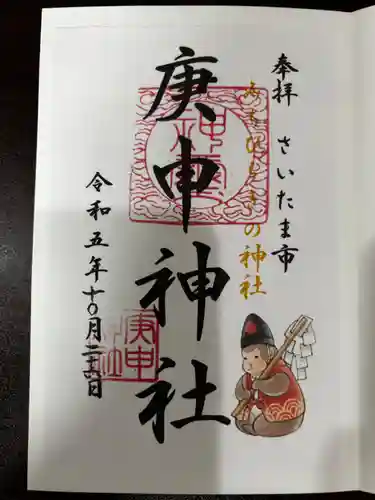 奉拝 さいたま市
みちひらきの神社
庚申神社
令和五年十〇月二十六日
庚申